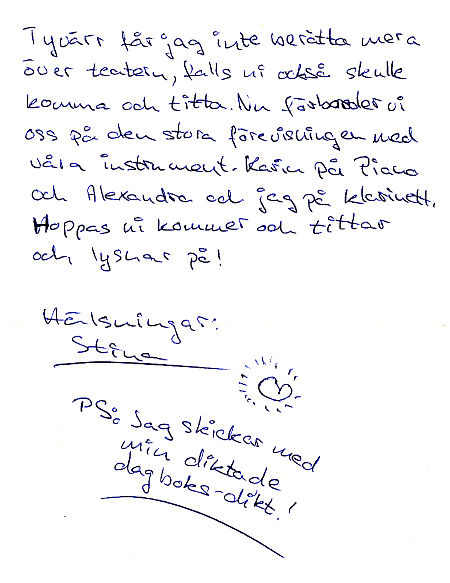 Tyvärr får jag inte berätta mera
över teatern, falls ni också skulle
komma och titta. Nu förbereder vi
oss på den stora förevisningen med
våra instrument. Karin på Piano
och Alexandra och jag på klarinett.
Hoppas ni kommer och tittar
och lysnar på!
Hälsningar:
Stina
PS: Jag skickar med
min diktade
dagboks-dikt!